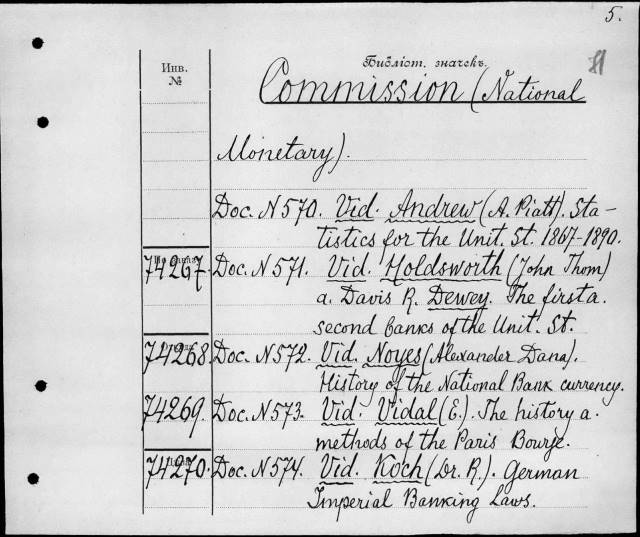 5.
Инв.
№
Библіот. значекъ.
Commission (National
Monetary).
Doc. N 570. Vid. Andrew (A. Piatt). Sta-
tistics for the Unit. St. 1867-1890.
74267. Doc. N 571. Vid. Holdsworth (John Thom)
a. Davis R. Dewey. The first a.
second banks of the Unit. St.
74268. Doc. N 572. Vid. Noyes (Alexander Dana).
History of the National Bank currency.
74269. Doc. N 573. Vid. Vidal (E.). The history a.
methods of the Paris Bourse.
74270. Doc. N 574. Vid. Koch (Dr. R.). German
Imperial Banking Laws.